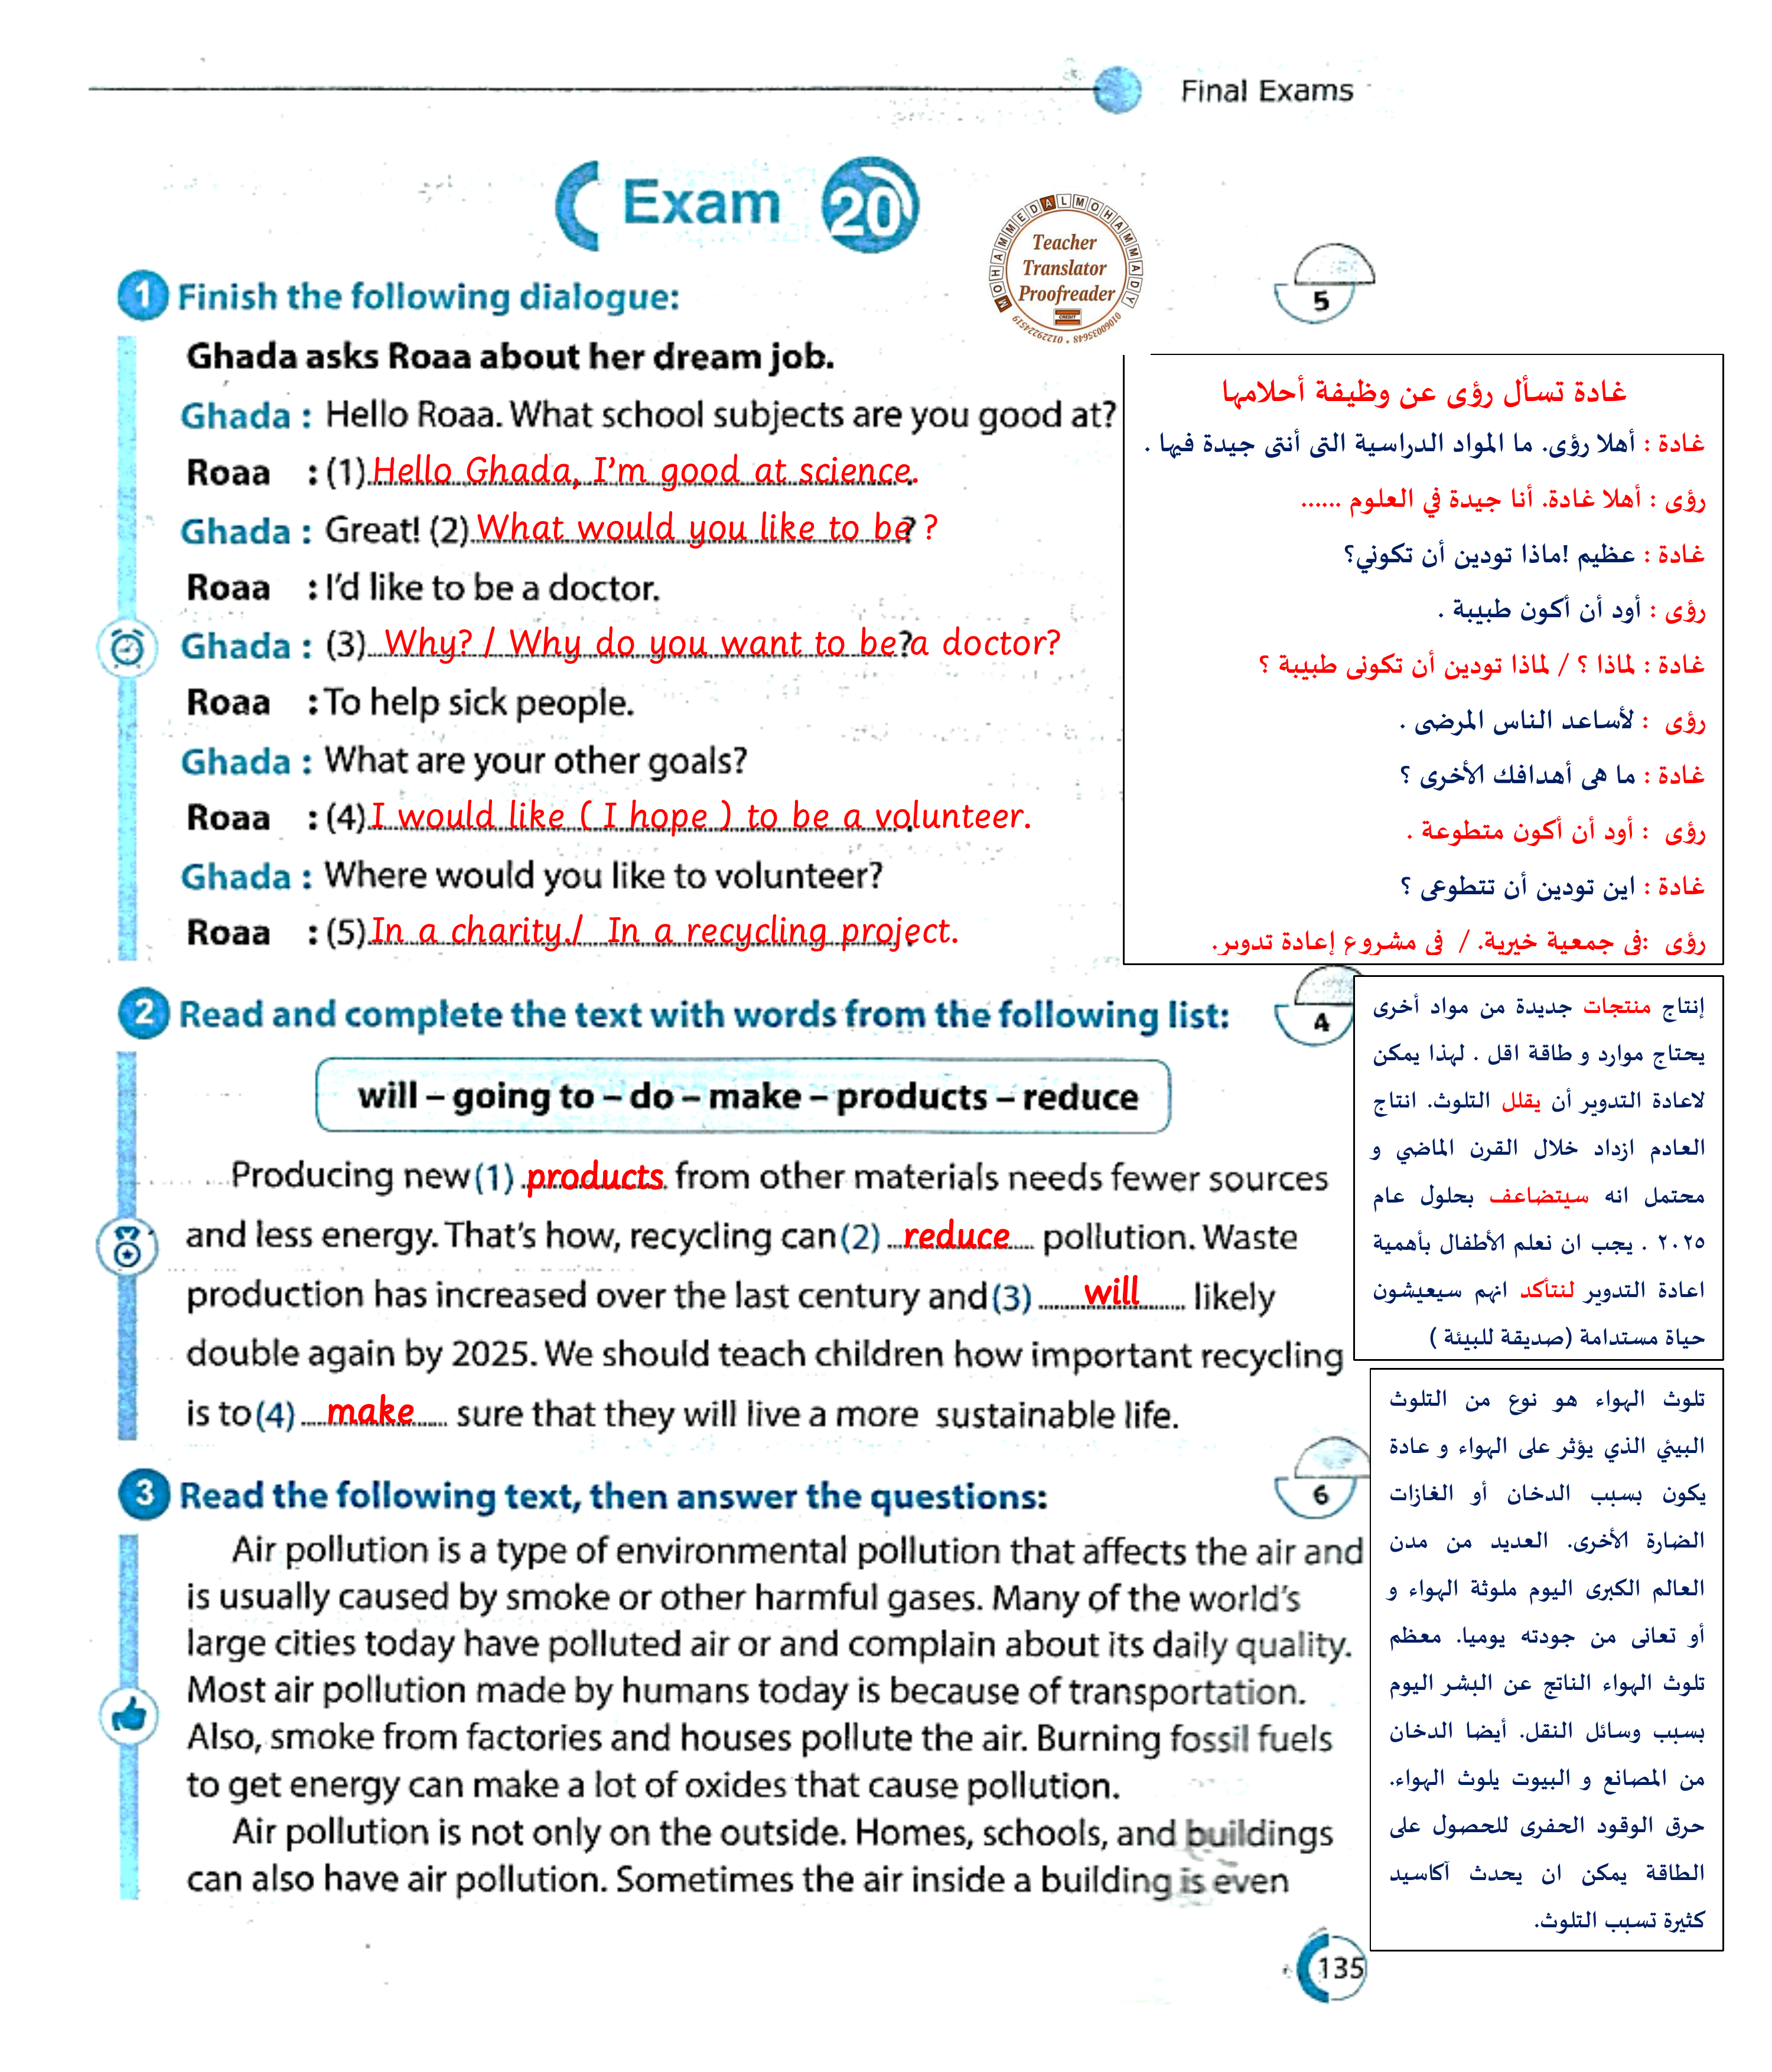 Final Exams
Exam 20
MOHAMMED ALMOHAMMADY
Teacher
Translator
Proofreader
CREDIT
01060035648 • 01229224519
1 Finish the following dialogue:
5
Ghada asks Roaa about her dream job.
Ghada : Hello Roaa. What school subjects are you good at?
Roaa : (1) Hello Ghada, I'm good at science.
Ghada : Great! (2) What would you like to be? ?
Roaa : I'd like to be a doctor.
Ghada : (3) Why? / Why do you want to be?a doctor?
Roaa : To help sick people.
Ghada : What are your other goals?
Roaa : (4) I would like ( I hope ) to be a volunteer.
Ghada : Where would you like to volunteer?
Roaa : (5) In a charity./ In a recycling project.
غادة تسأل رؤى عن وظيفة أحلامها
غادة : أهلا رؤى. ما المواد الدراسية التى أنتى جيدة فيها .
رؤى : أهلا غادة. أنا جيدة في العلوم ......
غادة : عظيم !ماذا تودين أن تكوني؟
رؤى : أود أن أكون طبيبة .
غادة : لماذا ؟ / لماذا تودين أن تكونى طبيبة ؟
رؤى : لأساعد الناس المرضى .
غادة : ما هى أهدافك الأخرى ؟
رؤى : أود أن أكون متطوعة .
غادة : اين تودين أن تتطوعى ؟
رؤى :فى جمعية خيرية. / فى مشروع إعادة تدوير.
2 Read and complete the text with words from the following list:
4
will – going to – do – make – products – reduce
Producing new (1) products from other materials needs fewer sources
and less energy. That's how, recycling can (2) reduce pollution. Waste
production has increased over the last century and (3) will likely
double again by 2025. We should teach children how important recycling
is to (4) make sure that they will live a more sustainable life.
إنتاج منتجات جديدة من مواد أخرى
يحتاج موارد و طاقة اقل . لهذا يمكن
لاعادة التدوير أن يقلل التلوث. انتاج
العادم ازداد خلال القرن الماضي و
محتمل انه سيتضاعف بحلول عام
٢٠٢٥ . يجب ان نعلم الأطفال بأهمية
اعادة التدوير لنتأكد انهم سيعيشون
حياة مستدامة (صديقة للبيئة )
3 Read the following text, then answer the questions:
6
Air pollution is a type of environmental pollution that affects the air and
is usually caused by smoke or other harmful gases. Many of the world's
large cities today have polluted air or and complain about its daily quality.
Most air pollution made by humans today is because of transportation.
Also, smoke from factories and houses pollute the air. Burning fossil fuels
to get energy can make a lot of oxides that cause pollution.
Air pollution is not only on the outside. Homes, schools, and buildings
can also have air pollution. Sometimes the air inside a building is even
تلوث الهواء هو نوع من التلوث
البيئي الذي يؤثر على الهواء و عادة
يكون بسبب الدخان أو الغازات
الضارة الأخرى. العديد من مدن
العالم الكبرى اليوم ملوثة الهواء و
أو تعانى من جودته يوميا. معظم
تلوث الهواء الناتج عن البشر اليوم
بسبب وسائل النقل. أيضا الدخان
من المصانع و البيوت يلوث الهواء.
حرق الوقود الحفرى للحصول على
الطاقة يمكن ان يحدث آكاسيد
كثيرة تسبب التلوث.
135